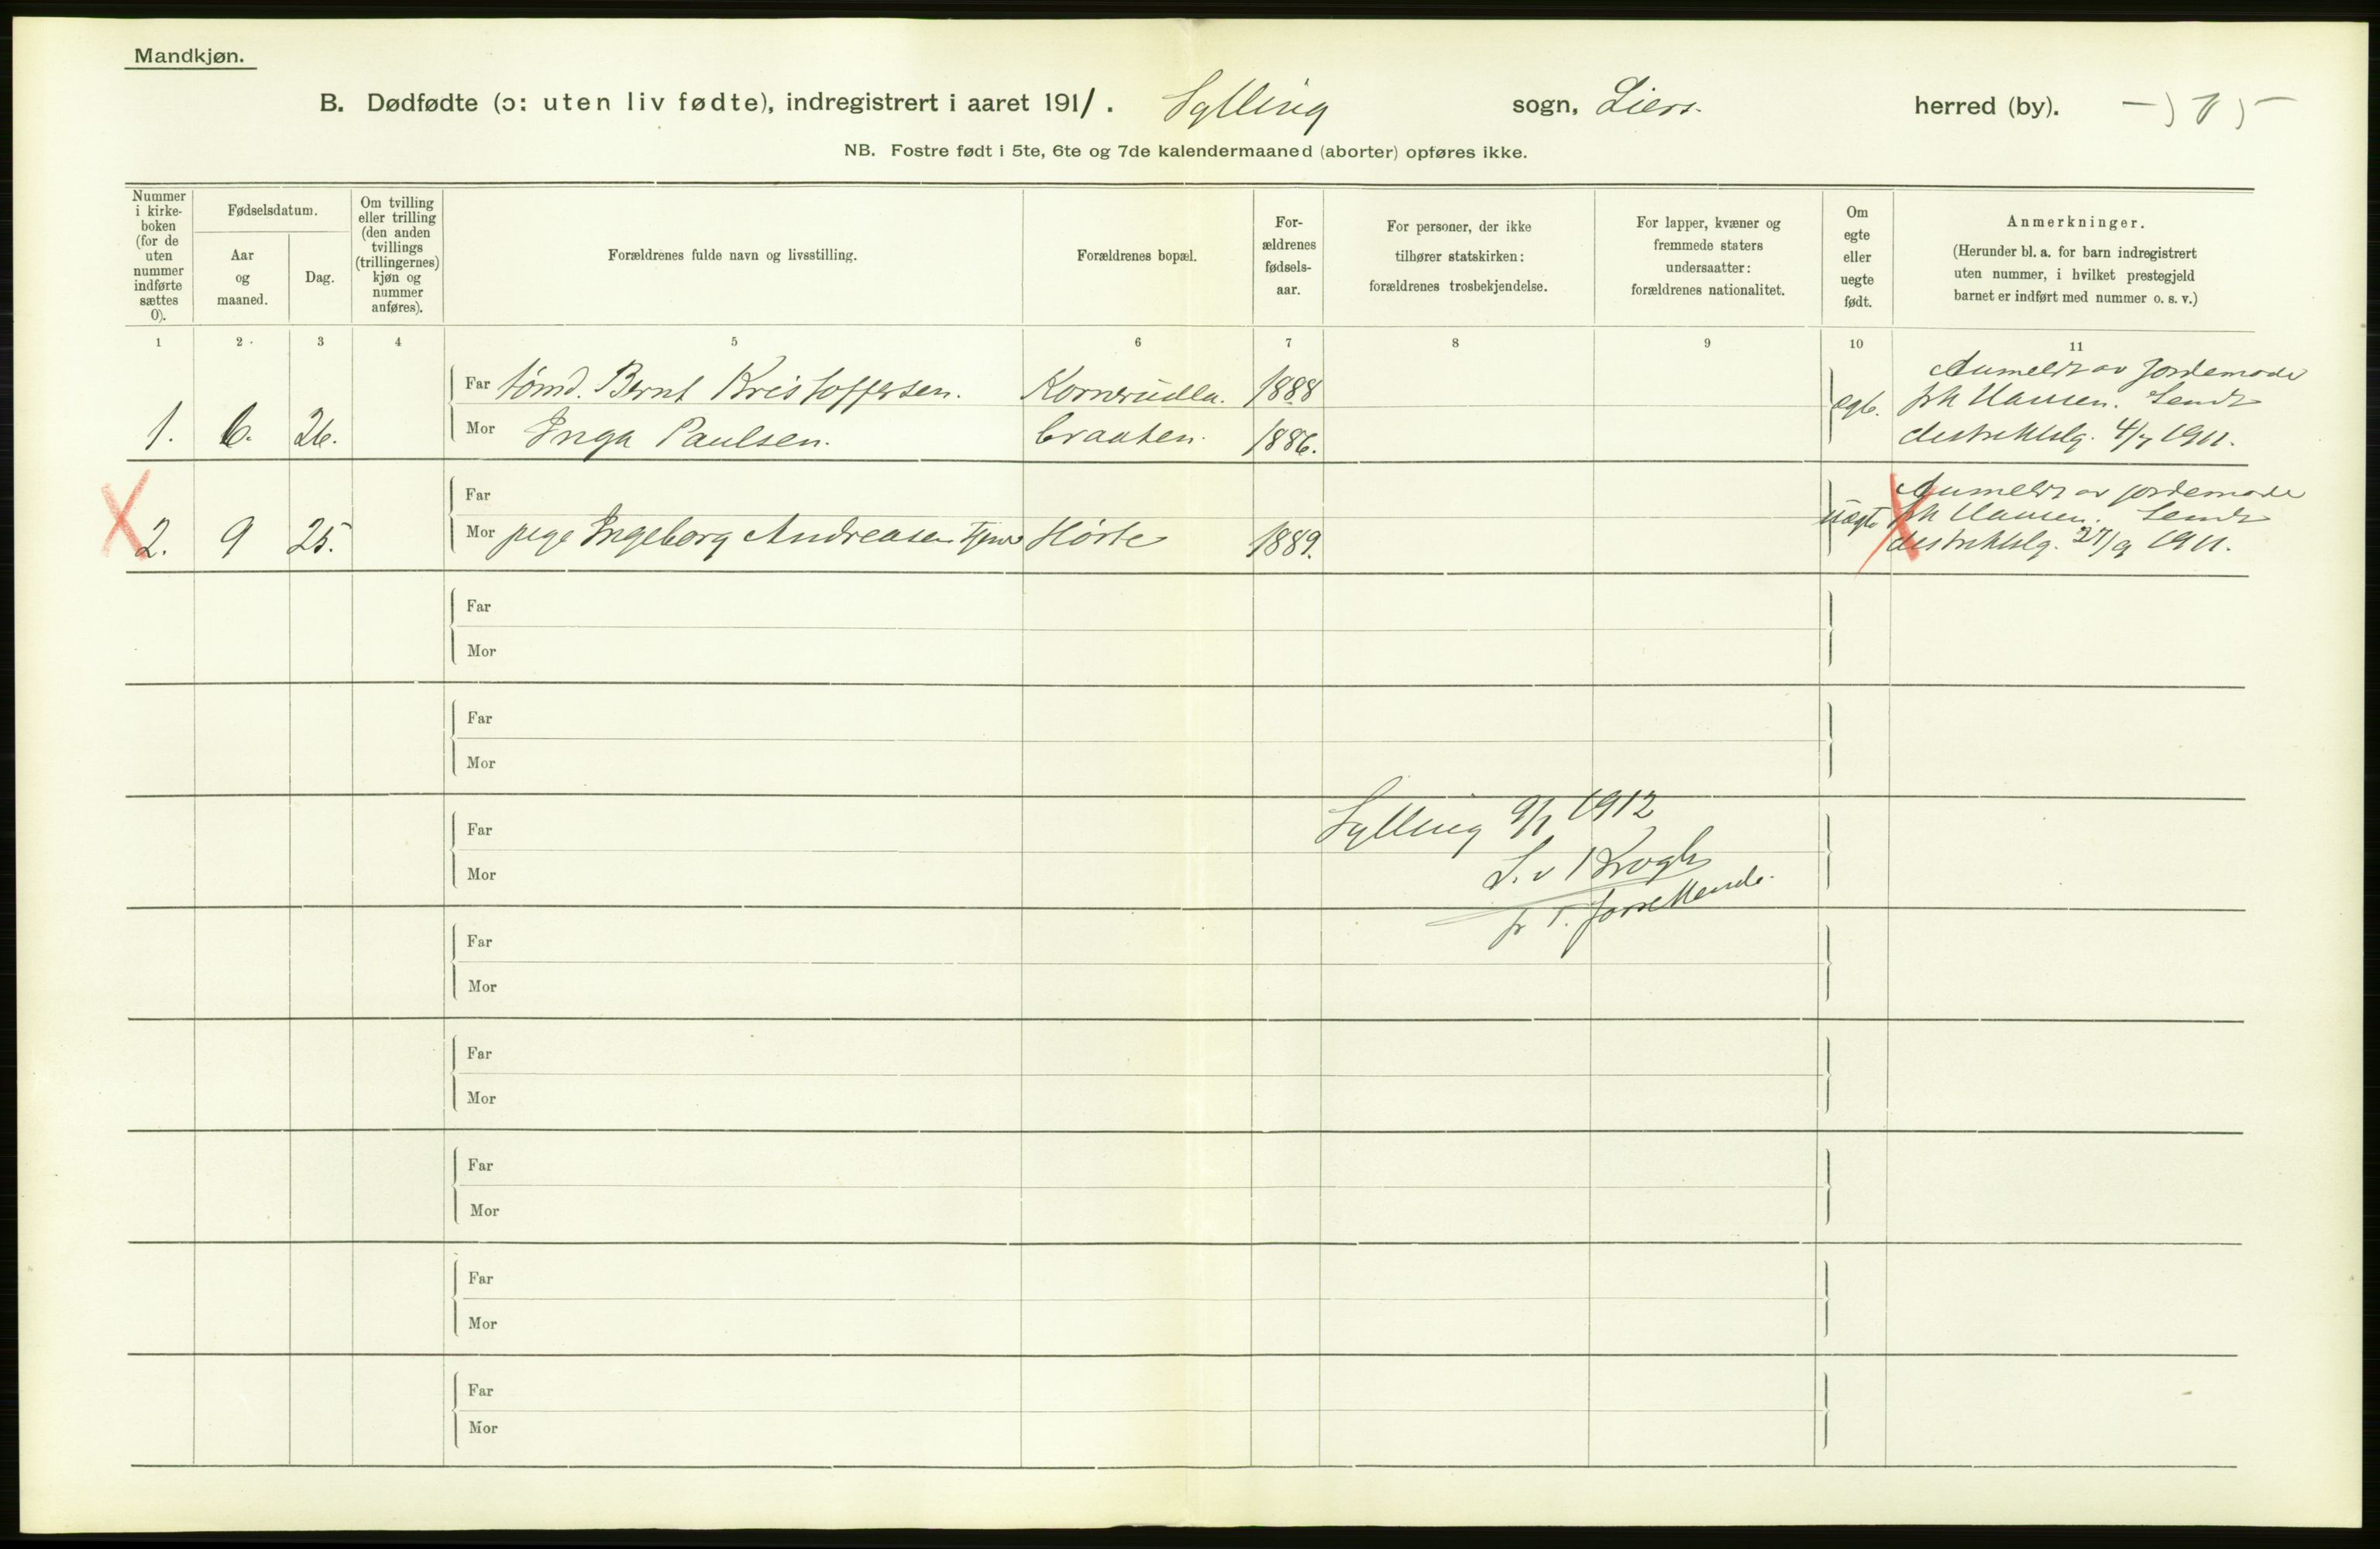 Mandkjøn.
B. Dødfødte (ɔ: uten liv fødte), indregistrert i aaret 1911. Sylling sogn, Liers herred (by).
NB. Fostre født i 5te, 6te og 7de kalendermaaned (aborter) opføres ikke.
Nummer i kirke-boken (for de uten nummer indførte sættes 0).
Fødselsdatum.
Aar og maaned.
Dag.
Om tvilling eller trilling (den anden tvillings (trillingernes) kjøn og nummer anføres).
Forældrenes fulde navn og livsstilling.
Forældrenes bopæl.
For-ældrenes fødsels-aar.
For personer, der ikke tilhører statskirken: forældrenes trosbekjendelse.
For lapper, kvæner og fremmede staters undersaatter: forældrenes nationalitet.
Om egte eller uegte født.
Anmerkninger.
(Herunder bl. a. for barn indregistrert uten nummer, i hvilket prestegjeld barnet er indført med nummer o. s. v.)
1 2 3 4 5 6 7 8 9 10 11
Far tømd. Bernt Kristoffersen. Kornerudla. 1888 Anmeldt av Jordemoder
1. 6. 26. egt. Hansen. Sendt
Mor Inga Paulsen. braaten. 1886. distriktslg. 4/7 1911.
Far Anmeldt av jordemoder
2. 9 25. uægte Hansen. Sendt
Mor pige Ingeborg Andreasen Tjene Hørte 1889. distriktslg. 27/9 1911.
Far
Mor
Far
Mor
Sylling 9/1 1912
Far
L. v Krogh
Mor
Far
Mor
Far
Mor
Far
Mor
Far
Mor
Far
Mor